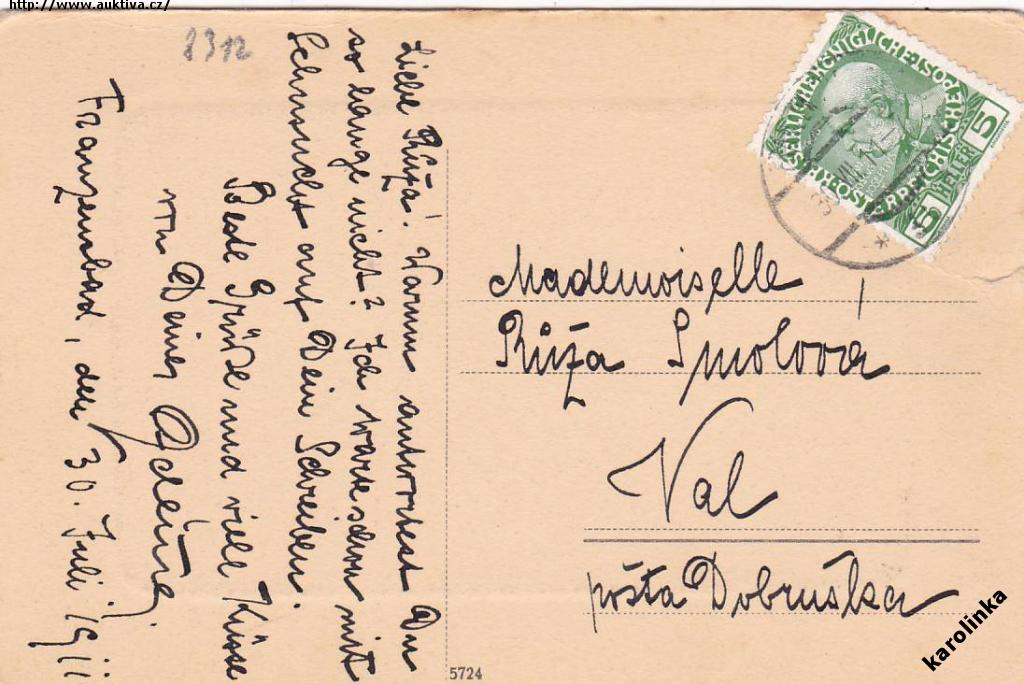 http://www.auktiva.cz/
8312
Liebe Růža! Warum antwortest Du
so lange nicht? Ich warte schon mit
Sehnsucht auf Dein Schreiben.
Beste Grüße und viele Küsse
von Deiner
Franzensbad, den 30. Juli 1911
KAISERLICHE KÖNIGLICHE POST
ÖSTERREICHISCHE
5 HELLER 5
Mademoiselle
Růža Smolová
Val
pošta Dobruška
5724
karolinka